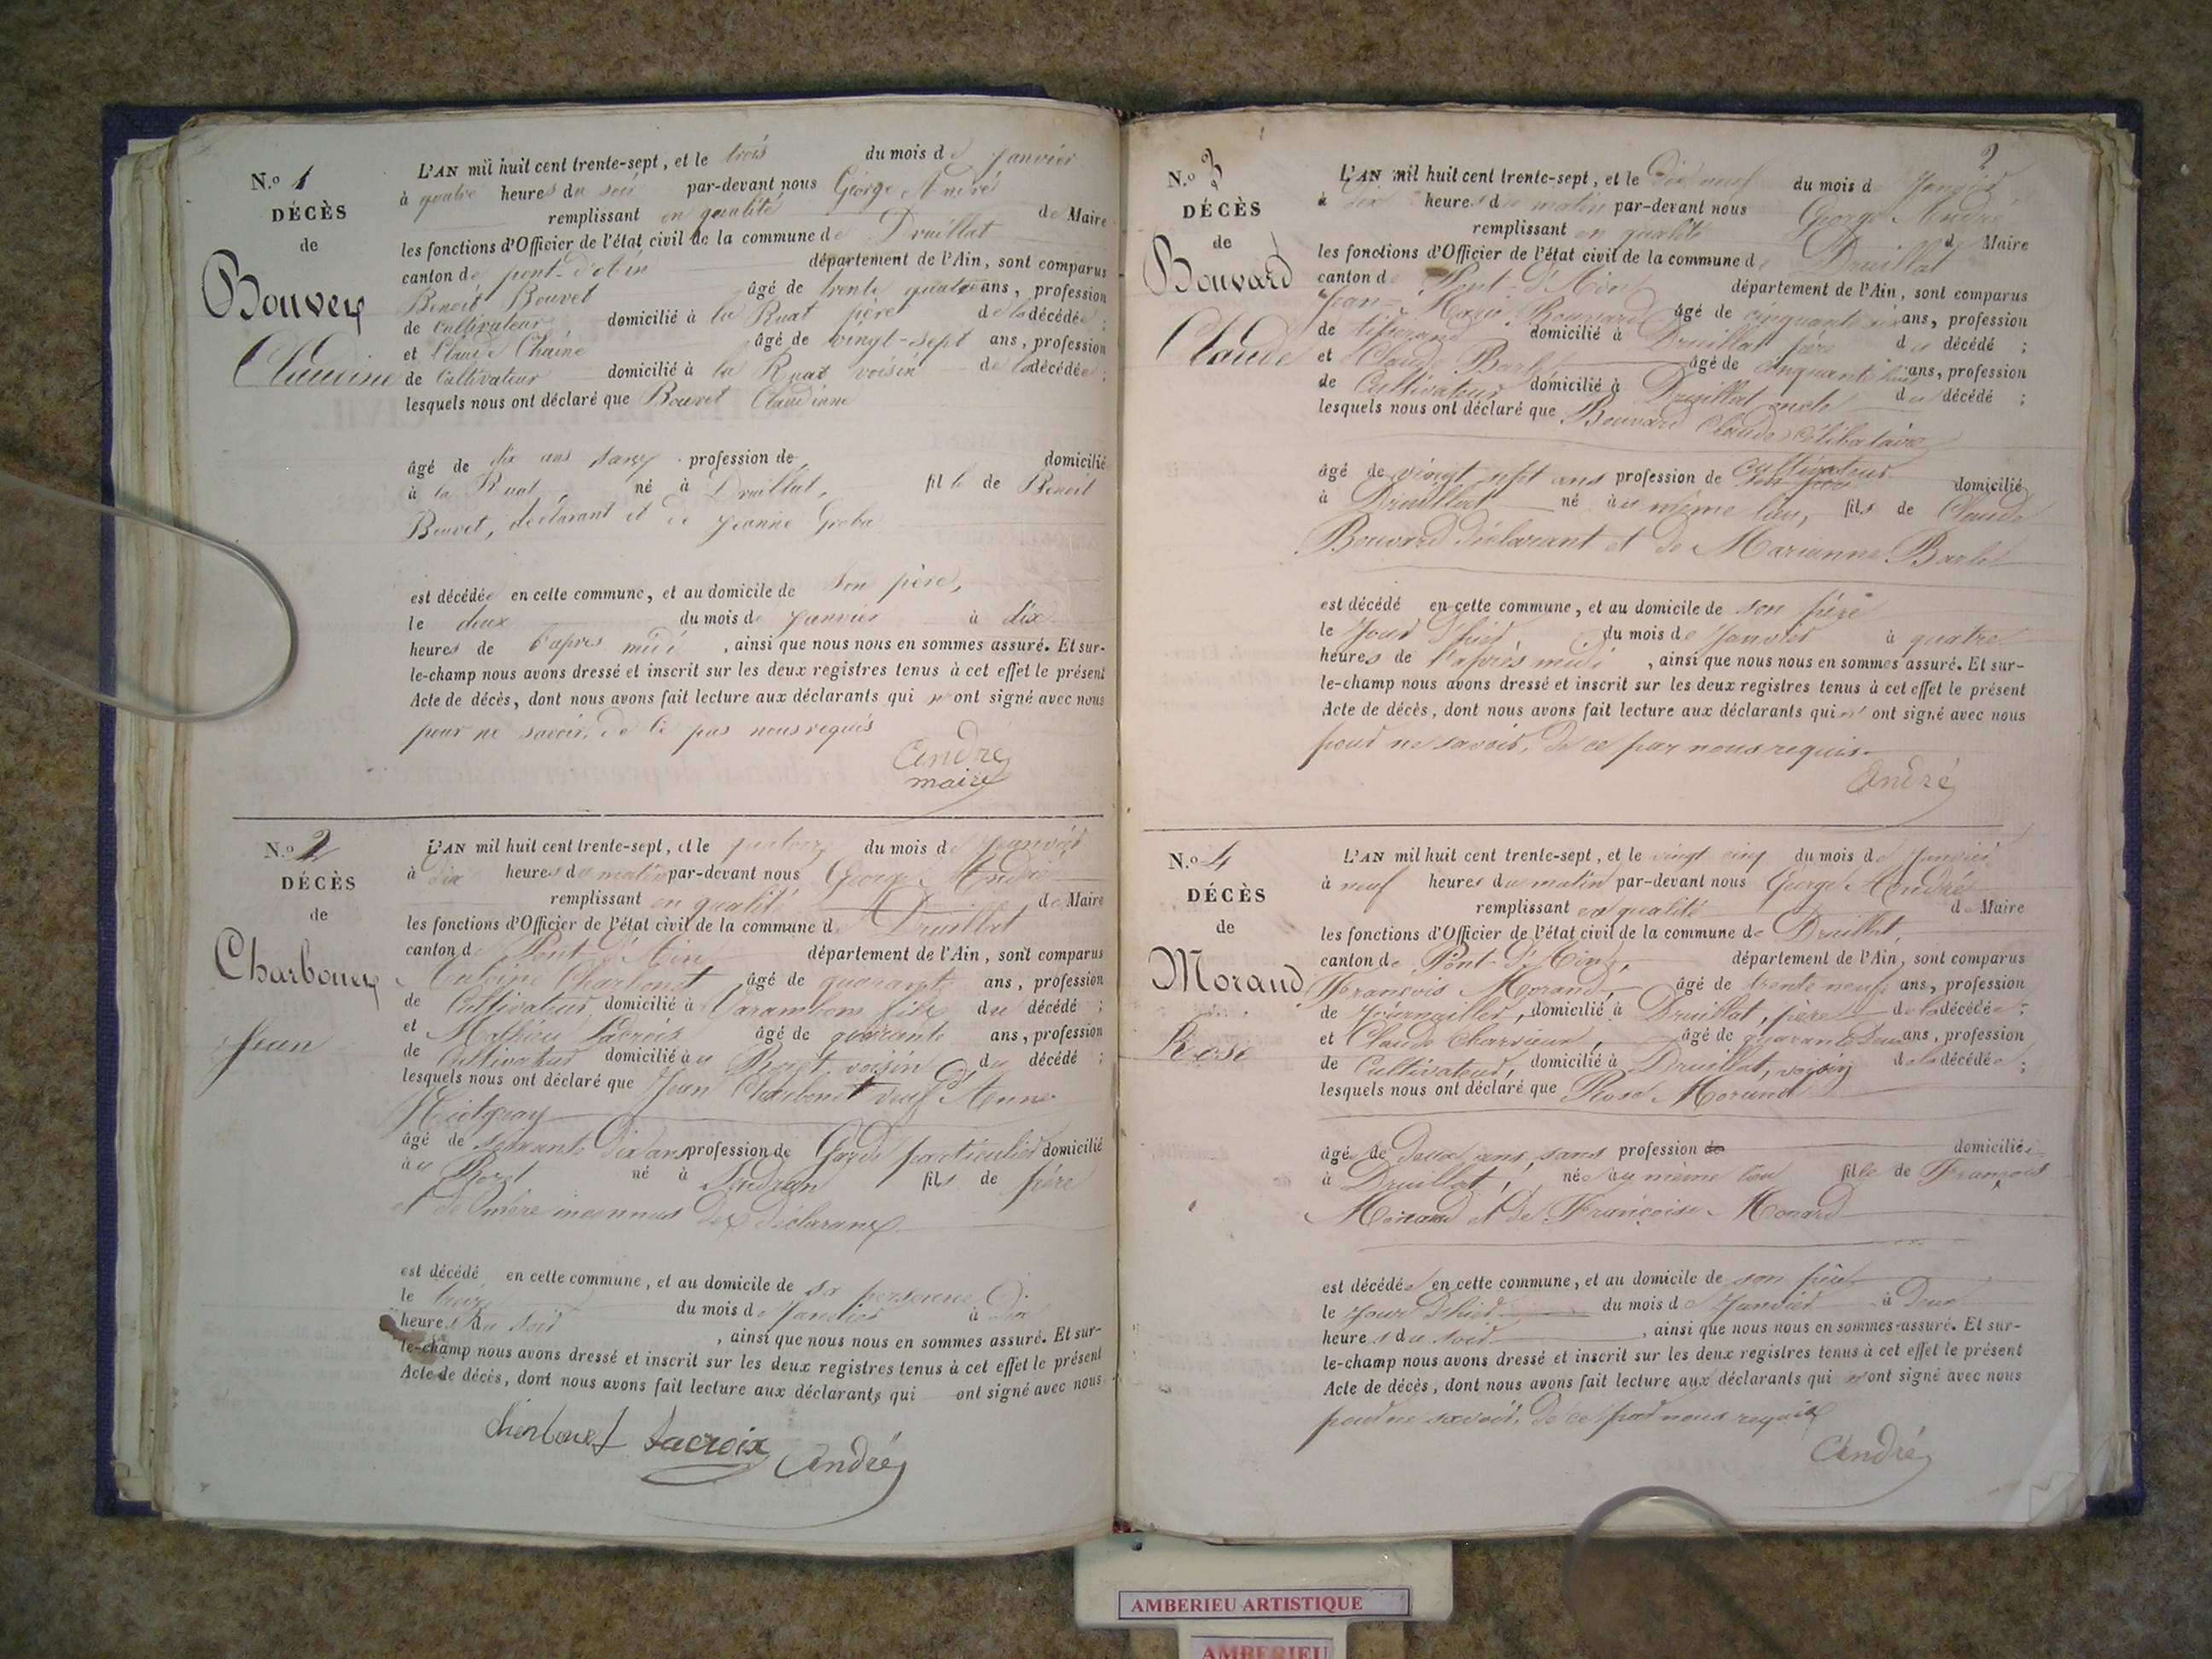 N.º 1
DÉCÈS
de
Bouvet
Claudine
L'AN mil huit cent trente-sept, et le trois du mois de Janvier
à quatre heures du soir par-devant nous George André
remplissant en qualité de Maire
les fonctions d'Officier de l'état civil de la commune de Druillat
canton de pont-d'ain département de l'Ain, sont comparus
Benoit Bouvet âgé de trente quatre ans, profession
de cultivateur, domicilié à la Ruat père de la décédée ;
et Claude Chaine âgé de vingt-sept ans, profession
de Cultivateur domicilié à la Ruat voisin de la décédée ;
lesquels nous ont déclaré que Bouvet Claudinne
âgé de dix ans sans profession de domicilié
à la Ruat, né à Druillat, fille de Benoit
Bouvet, déclarant et de Jeanne
est décédée en cette commune, et au domicile de son père,
le deux du mois de Janvier à dix
heures de l'apres midi, ainsi que nous nous en sommes assuré. Et sur-
le-champ nous avons dressé et inscrit sur les deux registres tenus à cet effet le présent
Acte de décès, dont nous avons fait lecture aux déclarants qui n'ont signé avec nous
pour ne savoir, de ce pas nous requis
André
maire
N.º 2
DÉCÈS
de
Charbonet
Jean
L'AN mil huit cent trente-sept, et le quatorze du mois de Janvier
à dix heures du matin par-devant nous George André
remplissant en qualité de Maire
les fonctions d'Officier de l'état civil de la commune de Druillat
canton de Pont-d'Ain département de l'Ain, sont comparus
Antoine Charbonet âgé de quarante ans, profession
de Cultivateur domicilié à Varambon fils du décédé ;
et Mathieu Lacroix âgé de quarante ans, profession
de Cultivateur domicilié au voisin du décédé ;
lesquels nous ont déclaré que Jean Charbonet veuf d'Anne
âgé de soixante dix ans profession de Garde particulier domicilié
au né à fils de père
et de mère inconnus des déclarans
est décédé en cette commune, et au domicile de sa personne
le treize du mois de Janvier à dix
heures du soir, ainsi que nous nous en sommes assuré. Et sur-
le-champ nous avons dressé et inscrit sur les deux registres tenus à cet effet le présent
Acte de décès, dont nous avons fait lecture aux déclarants qui ont signé avec nous
Charbonet Lacroix André
2
N.º 3
DÉCÈS
de
Bouvard
Claude
L'AN mil huit cent trente-sept, et le Dix neuf du mois de Janvier
à dix heures du matin par-devant nous George André
remplissant en qualité de Maire
les fonctions d'Officier de l'état civil de la commune de Druillat
canton de Pont-d'Ain département de l'Ain, sont comparus
Jean-Marie Bouvard âgé de cinquante six ans, profession
de tisserand domicilié à Druillat père du décédé ;
et Claude Barlet âgé de cinquante ans, profession
de Cultivateur domicilié à Druillat oncle du décédé ;
lesquels nous ont déclaré que Bouvard Claude célibataire
âgé de vingt sept ans profession de cultivateur domicilié
à Druillat né au même lieu, fils de Claude
Bouvard déclarant et de Marianne Barlet
est décédé en cette commune, et au domicile de son père
le Jour d'hier, du mois de Janvier à quatre
heures de l'après midi, ainsi que nous nous en sommes assuré. Et sur-
le-champ nous avons dressé et inscrit sur les deux registres tenus à cet effet le présent
Acte de décès, dont nous avons fait lecture aux déclarants qui n'ont signé avec nous
pour ne savoir, de ce par nous requis.
André
N.º 4
DÉCÈS
de
Morand
Rose
L'AN mil huit cent trente-sept, et le vingt cinq du mois de Janvier
à neuf heures du matin par-devant nous George André
remplissant en qualité de Maire
les fonctions d'Officier de l'état civil de la commune de Druillat,
canton de Pont-d'Ain, département de l'Ain, sont comparus
François Morand, âgé de trente neuf ans, profession
de Journaillier, domicilié à Druillat, père de la décédée ;
et Claude Charvieux, âgé de quarante deux ans, profession
de Cultivateur, domicilié à Druillat, voisin de la décédée ;
lesquels nous ont déclaré que Rose Morand
âgée de deux ans, sans profession de domiciliée
à Druillat, née au même lieu fille de François
Morand et de Françoise Morard
est décédée en cette commune, et au domicile de son père
le Jour d'hier du mois de Janvier à Deux
heures du soir, ainsi que nous nous en sommes assuré. Et sur-
le-champ nous avons dressé et inscrit sur les deux registres tenus à cet effet le présent
Acte de décès, dont nous avons fait lecture aux déclarants qui n'ont signé avec nous
pour ne savoir, de ce par nous requis
André
AMBERIEU ARTISTIQUE
AMBERIEU